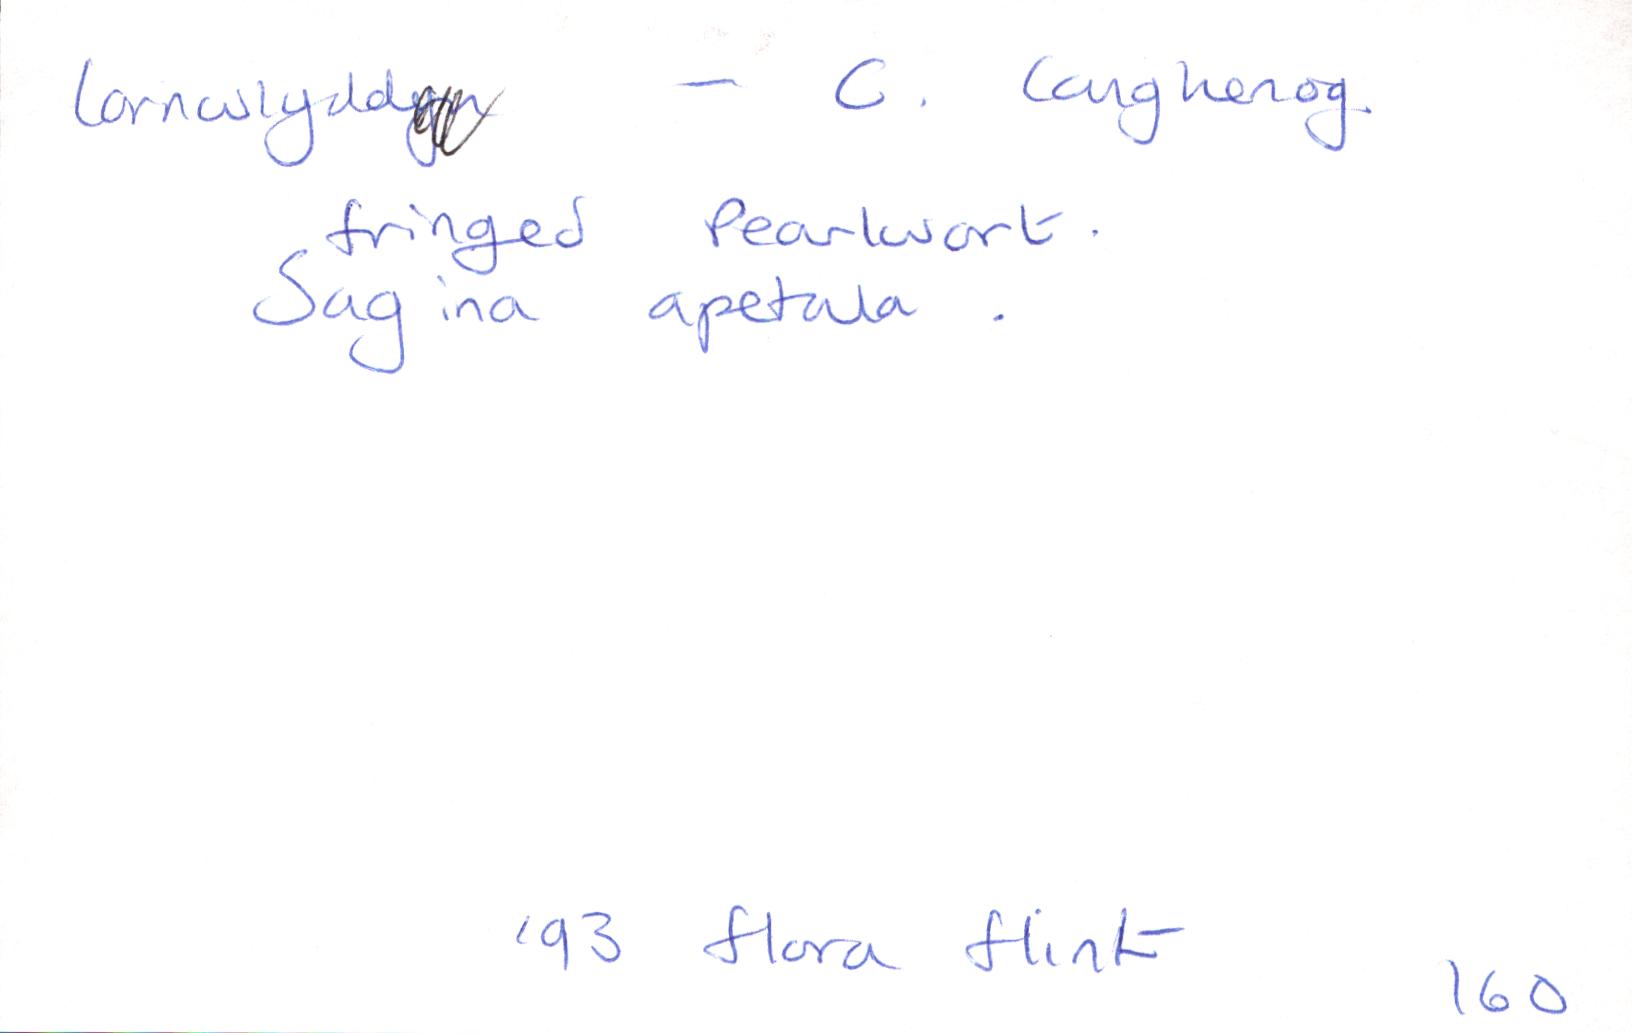 Cornwlydd — C. Caughenog.
fringed Pearlwort.
Sagina apetala.
'93 flora flint
160